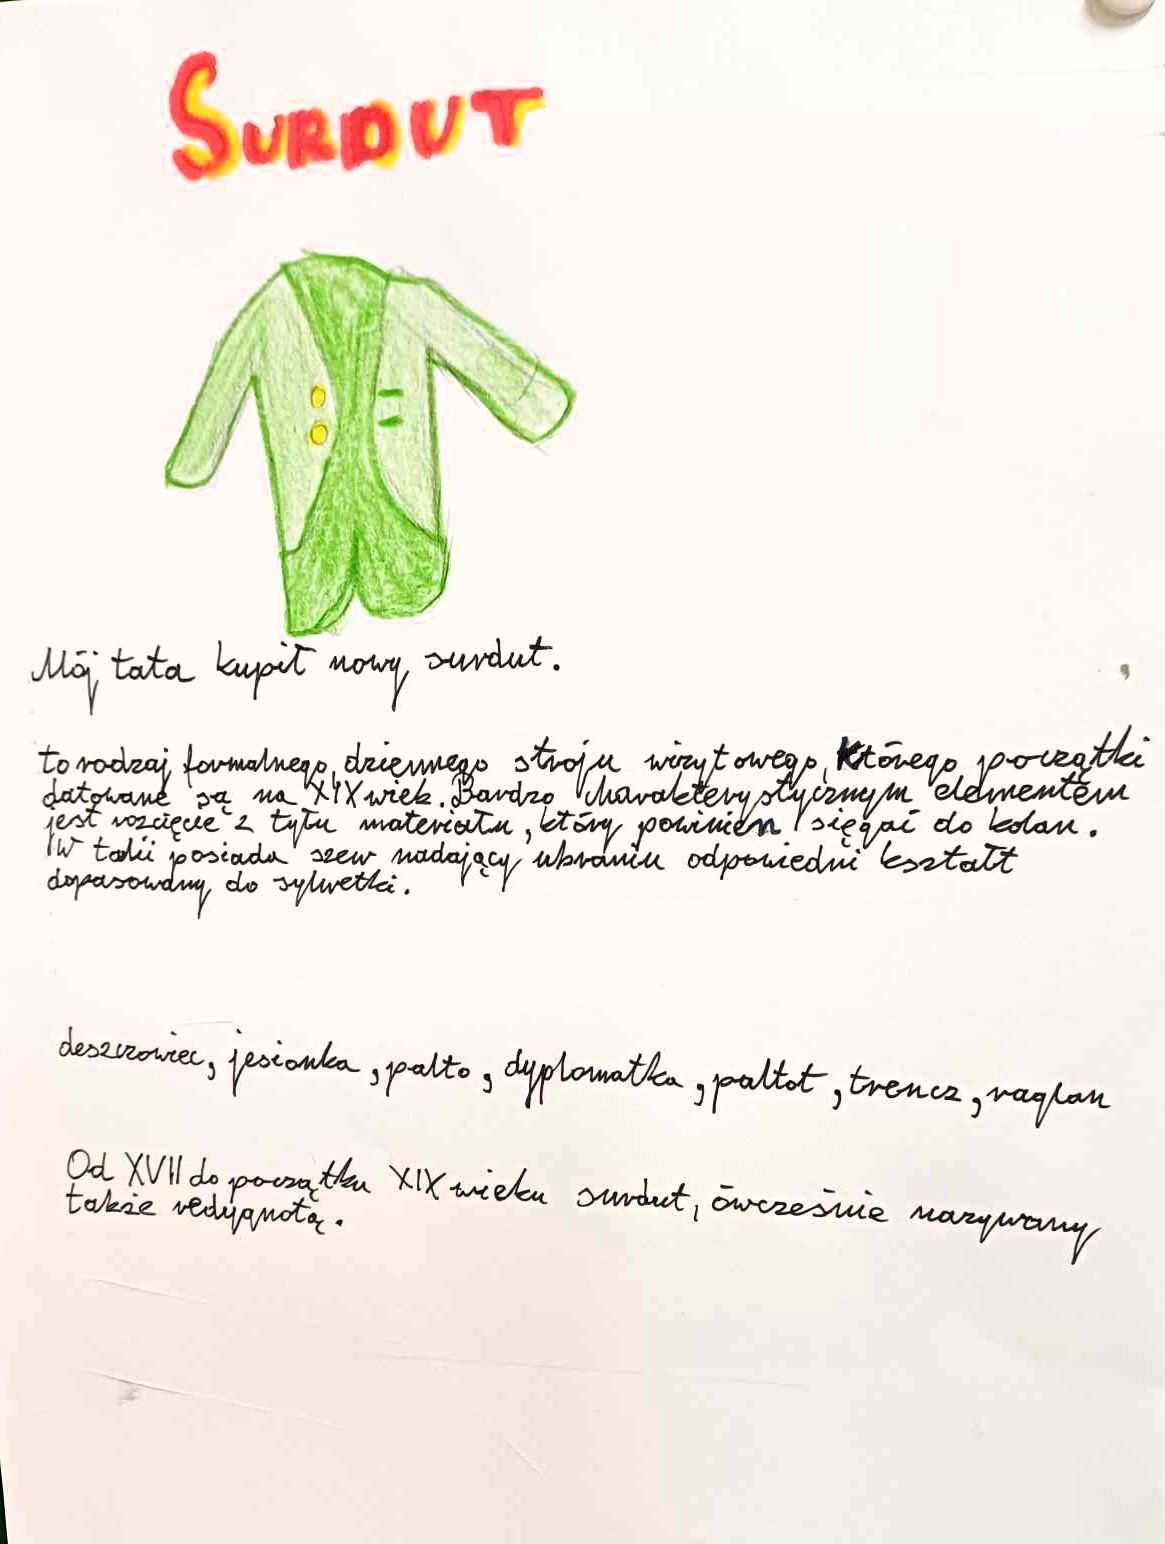 SURDUT
Mój tata kupił nowy surdut.
to rodzaj formalnego, dziennego stroju wizytowego, którego początki
datowane są na XIX wiek. Bardzo charakterystycznym elementem
jest rozcięcie z tyłu materiału, który powinien sięgać do kolan.
W talii posiada szew nadający ubraniu odpowiedni kształt
dopasowany do sylwetki.
deszczowiec, jesionka, palto, dyplomatka, paltot, trencz, raglan
Od XVII do początku XIX wieku surdut, ówcześnie nazywany
także redygnotą.